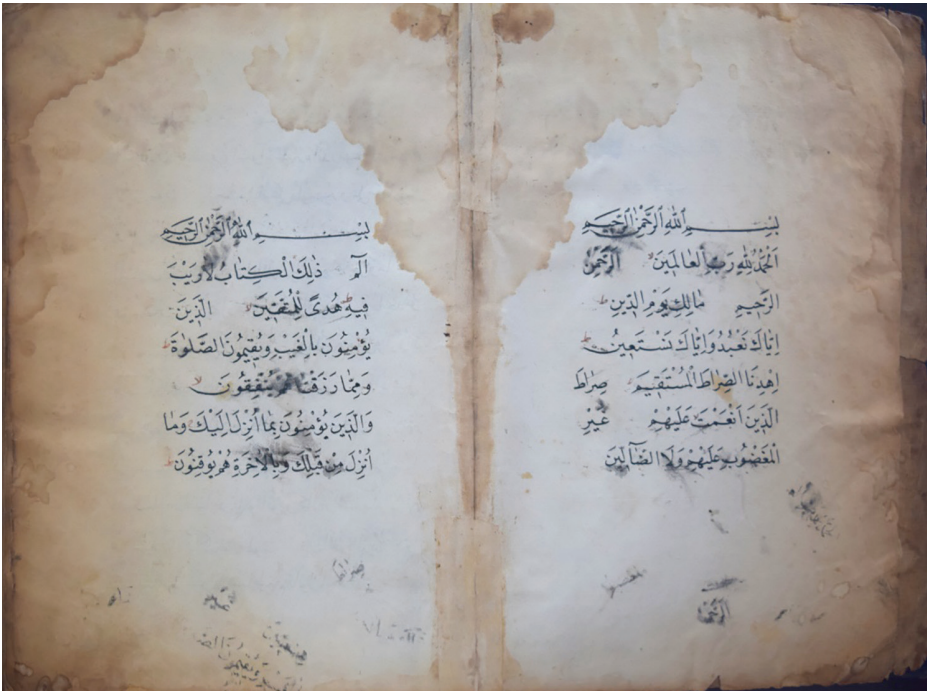 بِسْــــمِ ٱللّٰهِ ٱلرَّحْمٰنِ ٱلرَّحِيمِ
اَلْحَمْدُ لِلّٰهِ رَبِّ الْعَالَمٖينَ الرَّحْمٰنِ
الرَّحٖيمِ مَالِكِ يَوْمِ الدّٖينِ ط
اِيَّاكَ نَعْبُدُ وَاِيَّاكَ نَسْتَعٖينُ ط
اِهْدِنَا الصِّرَاطَ الْمُسْتَقٖيمَ صِرَاطَ
الَّذٖينَ اَنْعَمْتَ عَلَيْهِمْ غَيْرِ
الْمَغْضُوبِ عَلَيْهِمْ وَلَا الضَّٓالّٖينَ
الرَّحْمٰنِ
بِسْــــــــمِ ٱللّٰهِ ٱلرَّحْمٰنِ ٱلرَّحِيمِ
الٓمٓ ذٰلِكَ الْكِتَابُ لَا رَيْبَ
فٖيهِ ط هُدًى لِلْمُتَّقٖينَ لا الَّذٖينَ
يُؤْمِنُونَ بِالْغَيْبِ وَيُقٖيمُونَ الصَّلٰوةَ ط
وَمِمَّا رَزَقْنَاهُمْ يُنْفِقُونَ لا
وَالَّذٖينَ يُؤْمِنُونَ بِمَا اُنْزِلَ اِلَيْكَ وَمَا
اُنْزِلَ مِنْ قَبْلِكَ وَبِالْاٰخِرَةِ هُمْ يُوقِنُونَ ط
صراط